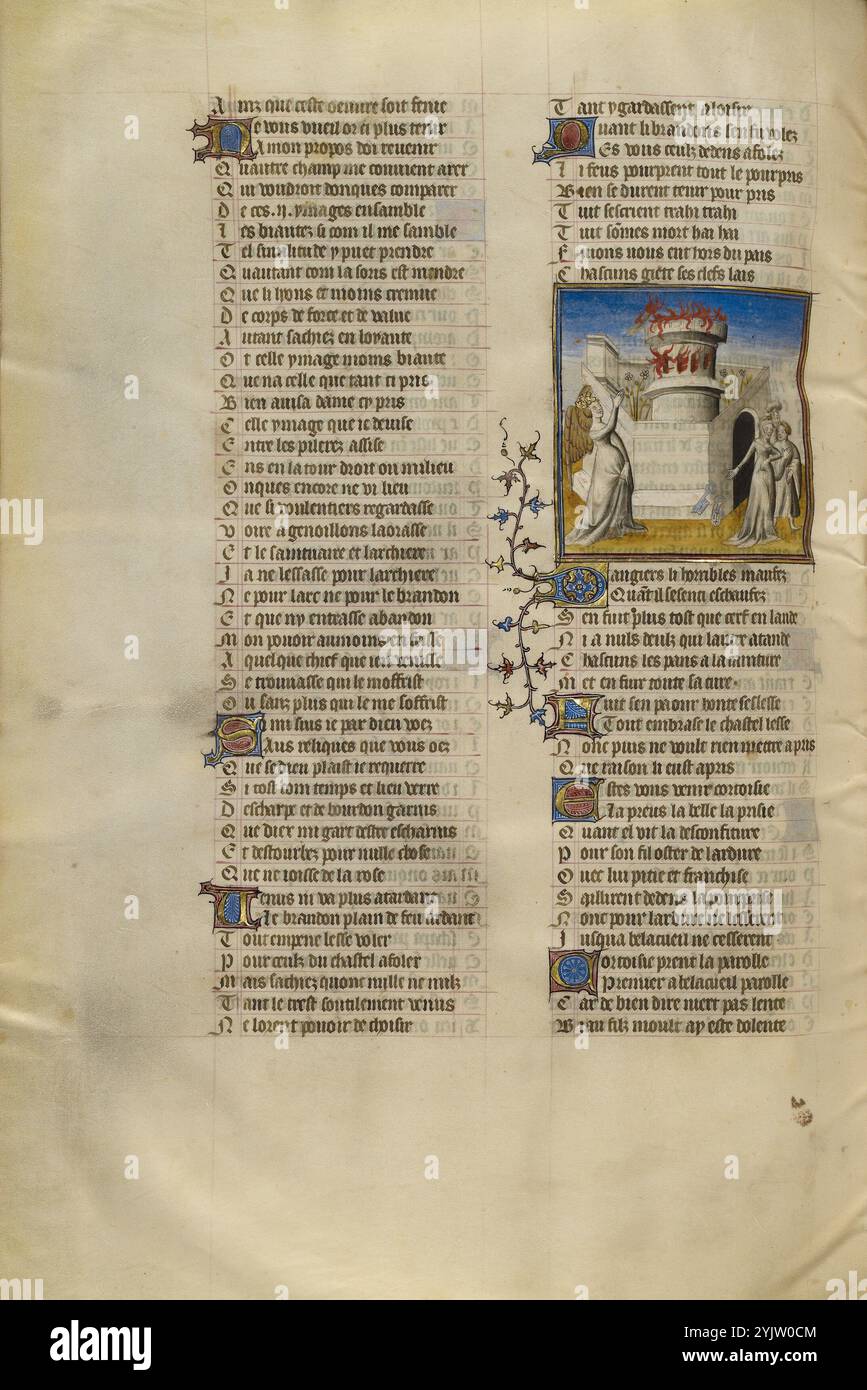 Ainz que ceste oeuure soit fenie
Ne vous vueil or ci plus tenir
A mon propos doi reuenir
Quautre champ me conuient arer
Qui voudroit donques comparer
De ces .ii. ymages ensamble
Les biautez si com il me samble
Tel similitude y puet prendre
Quautant com la soris est mendre
Que li lyons et moins cremue
De corps de force et de value
Autant sachiez en loyaute
Ot celle ymage moins biaute
Que na celle que tant ci pris
Bien auisa dame cypris
Celle ymage que ie deuise
Entre les pilerez assise
Ens en la tour droit ou milieu
Onques encore ne vi lieu
Que si voulentiers regardasse
Voire a genoillons laorasse
Et le saintuaire et larchiere
Ja ne lessasse pour larchiere
Ne pour larc ne pour le brandon
Et que ny entrasse abandon
Mon pouoir au moins en
A quelque chief que ien
Se trouuasse qui le moffrist
Ou sanz plus qui le me soffrist
Si mi suis ie par dieu voez
Aus reliques que vous oez
Que se dieu plaist ie requerre
Si tost com temps et lieu verre
Descharpe et de bourdon garnis
Que diex mi gart destre escharnis
Et destourbez pour nulle chose
Que ne ioisse de la rose
Venus ni va plus atardant
Le brandon plain de feu ardant
Tout empene lesse voler
Pour ceulz du chastel afoler
Mais sachiez quonc nulle ne nulz
Tant le trest soutilement venus
Ne lorent pouoir de choisir
Tant y gardassent a loisir
Quant li brandons sen fu volez
Es vous ceulz dedens afolez
Li feus pourprent tout le pourpris
Bien se durent tenir pour pris
Tuit sescrient trahi trahi
Tuit somes mort hai hai
Fuions nous ent hors du pais
Chascuns giete ses clefs lais
Dangiers li horribles maufez
Quant il se senti eschaufez
Sen fuit plus tost que cerf en lande
Ni a nul deulz qui lautre atande
Chascuns les pans a la cainture
Met en fuir toute sa cure
Fuit sen paour honte seslesse
Tout embrase le chastel lesse
Nonc puis ne voult rien mettre a pris
Que raison li eust apris
Estes vous venir cortoisie
La preus la belle la prisie
Quant el vit la desconfiture
Pour son fil oster de lardure
Ouec lui pitie et franchise
Saillirent dedens
Nonc pour lardure ne
Jusqua belacueil ne cesserent
Cortoisie prent la parolle
Premier a belacueil parolle
Car de bien dire niert pas lente
Biau filz moult ay este dolente
alamy
Image ID: 2YJW0CM
www.alamy.com